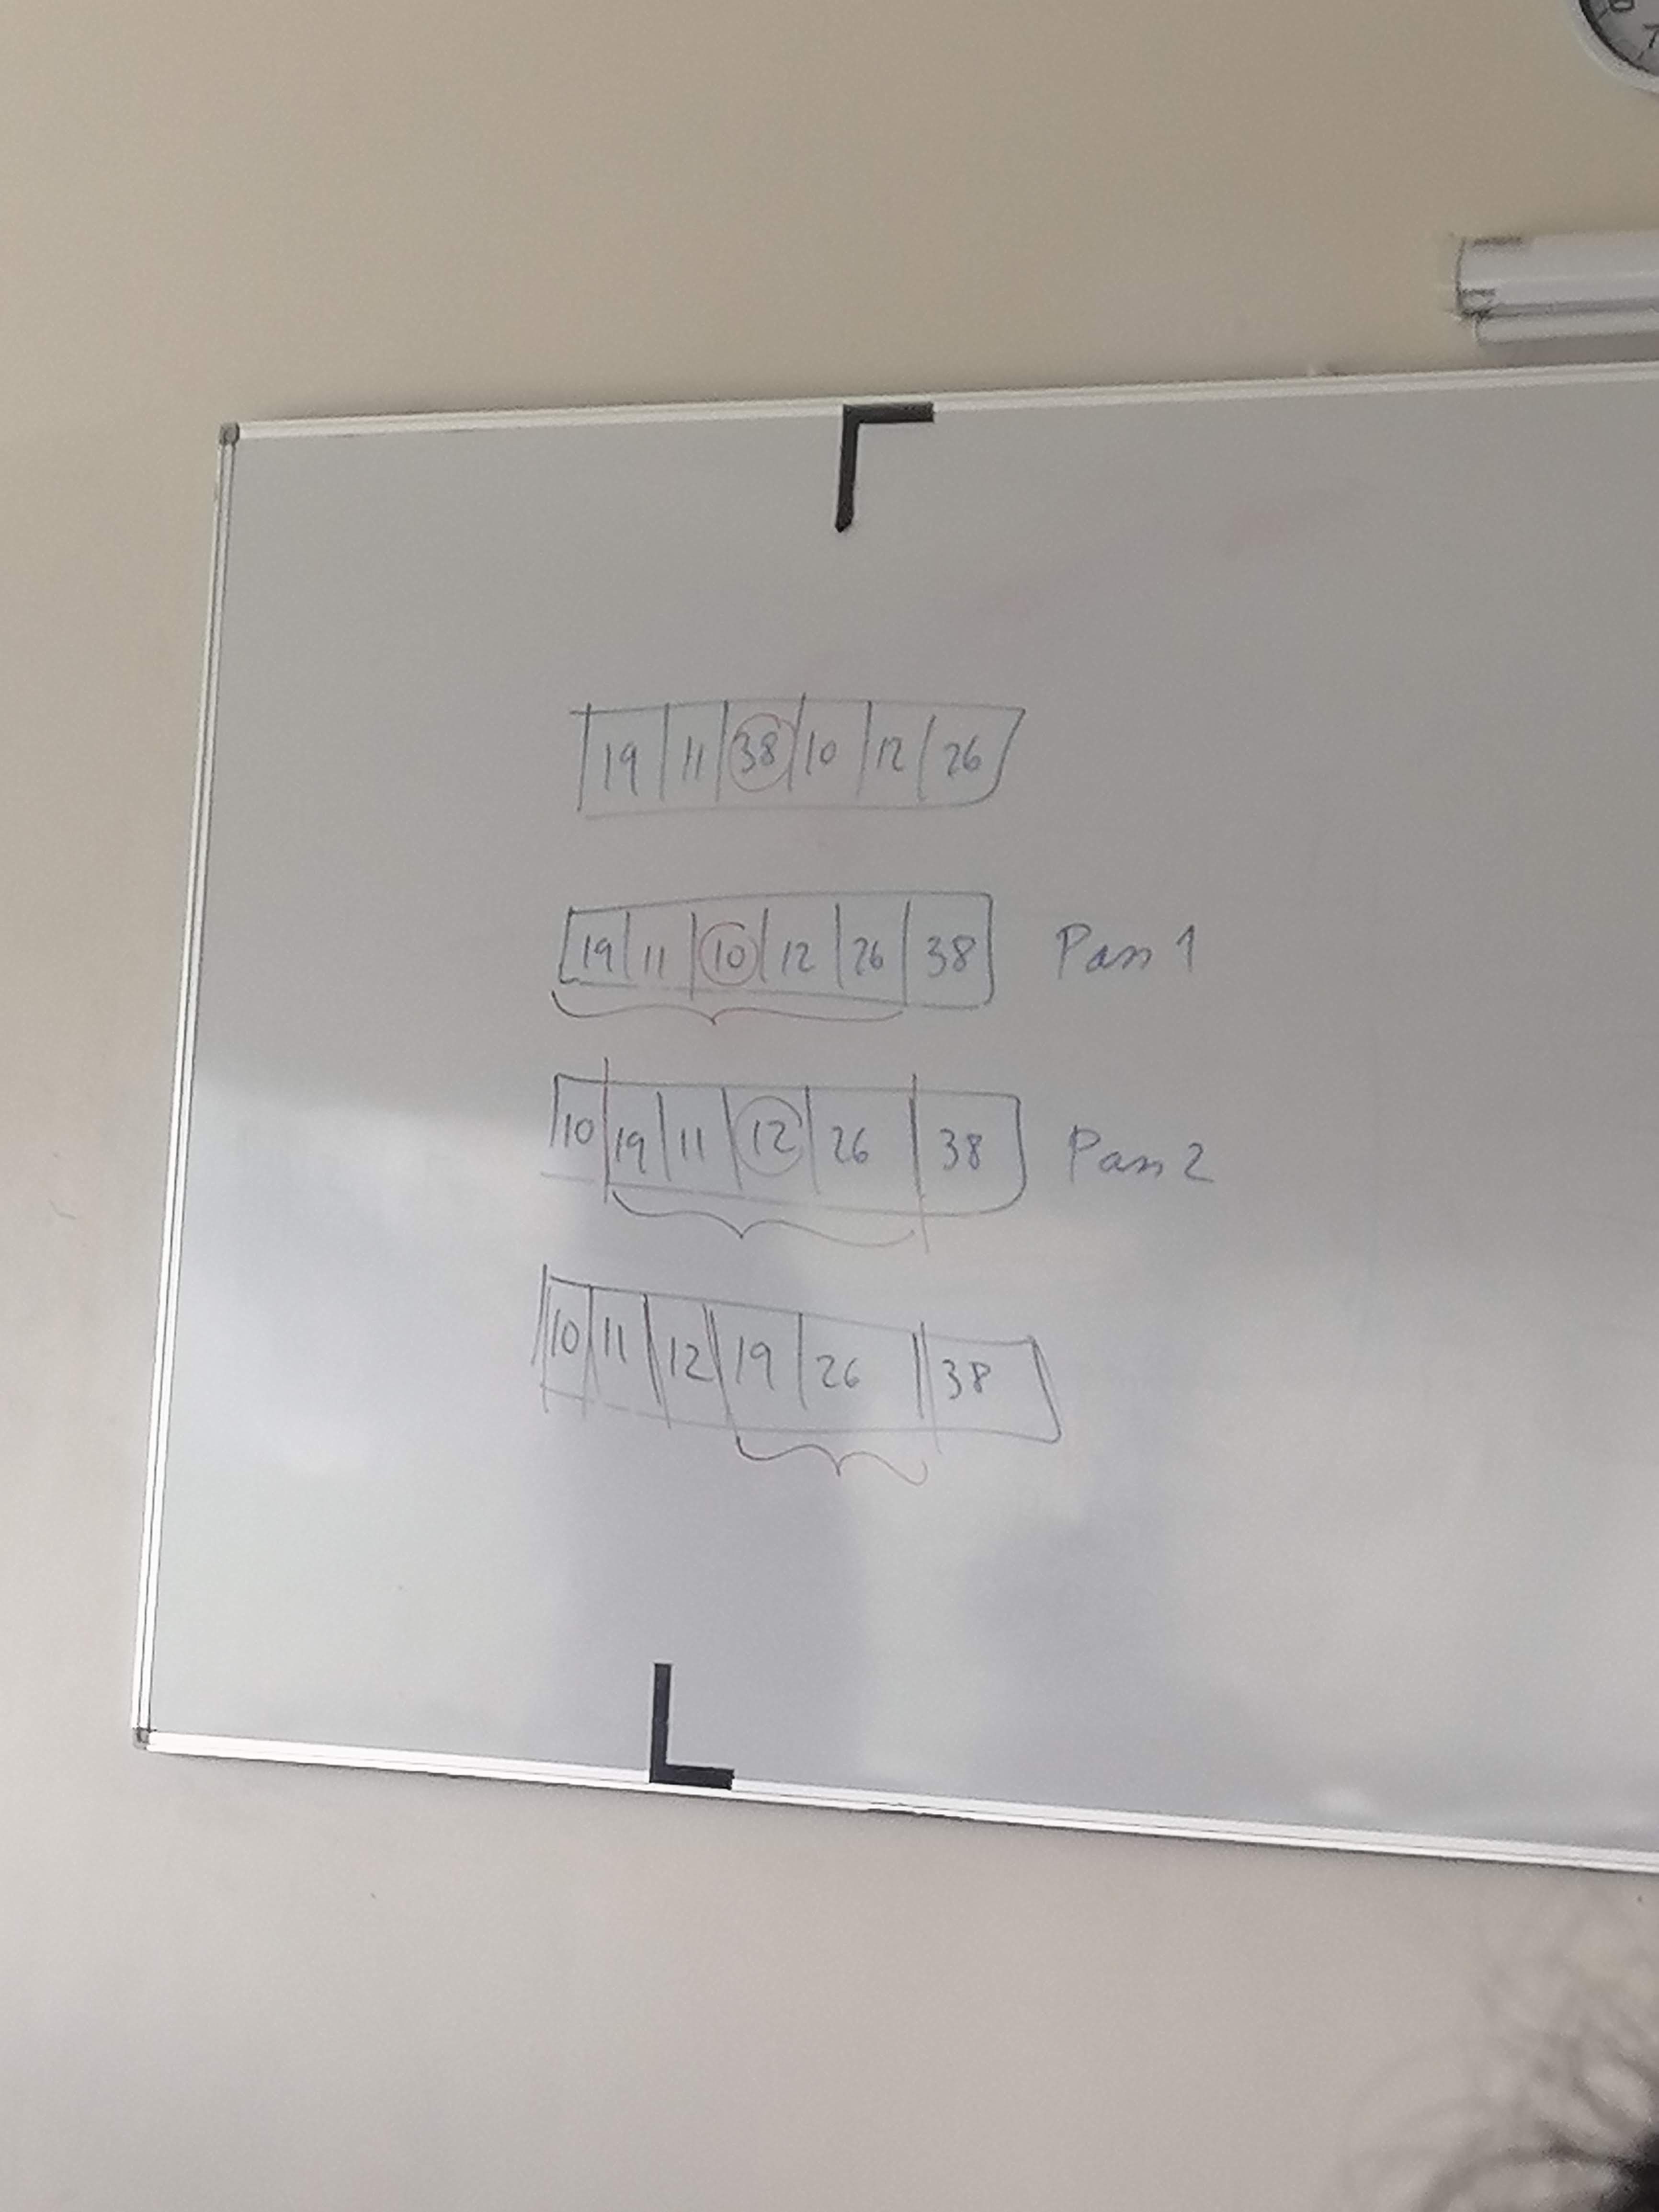 19 11 38 10 12 26
19 11 10 12 26 38 Pass 1
10 19 11 12 26 38 Pass 2
10 11 12 19 26 38